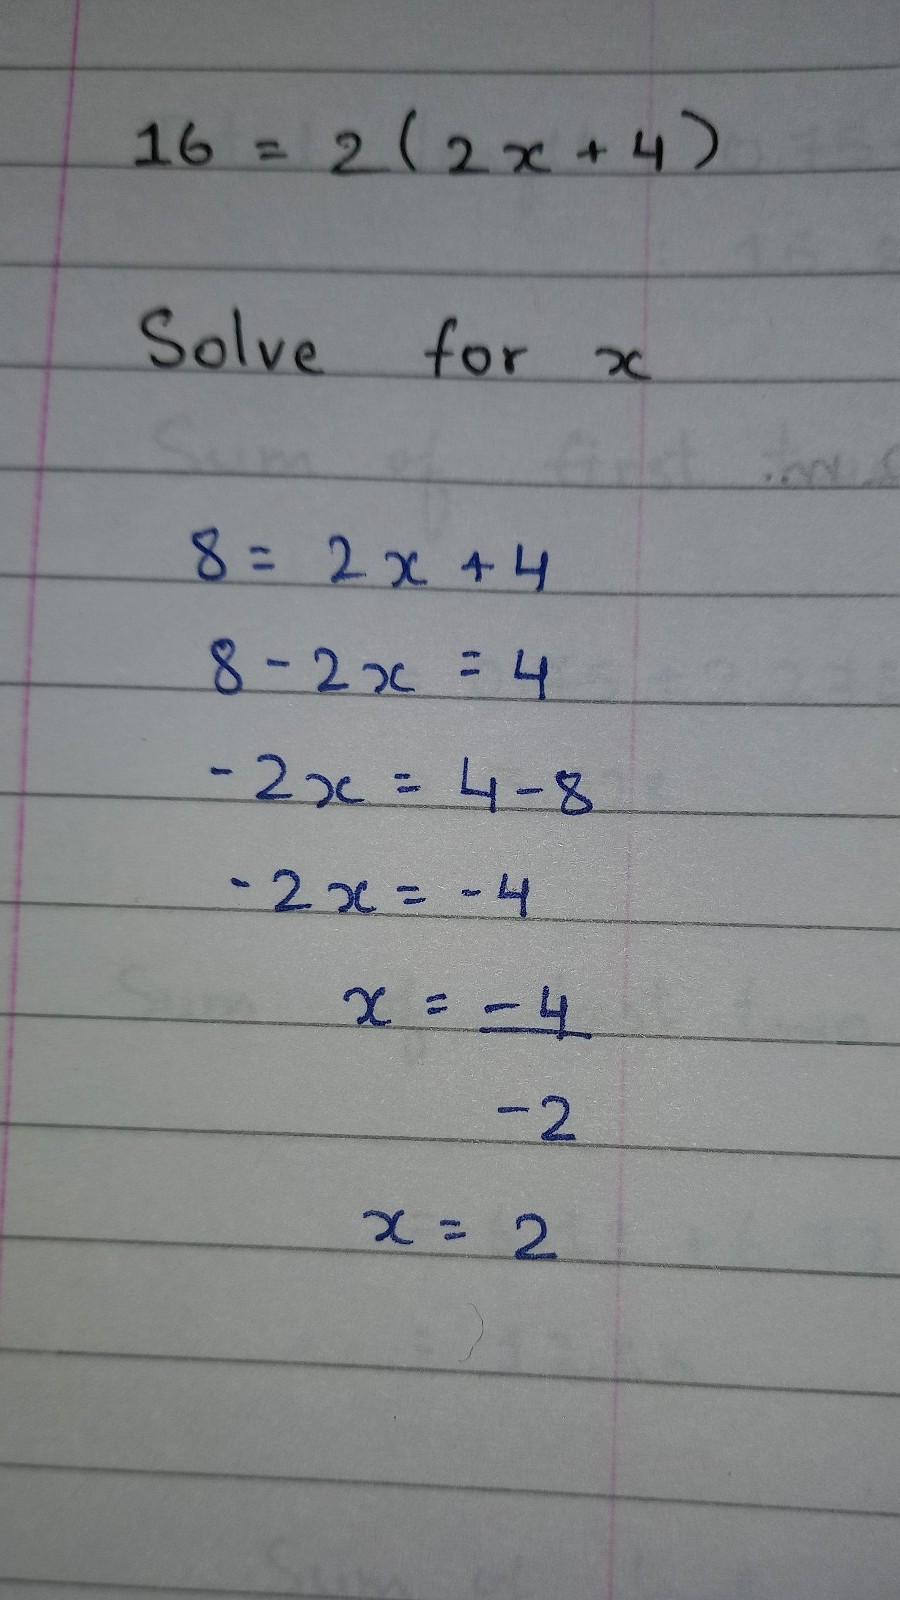 16 = 2(2x+4)
Solve for x
8 = 2x + 4
8 - 2x = 4
-2x = 4-8
-2x = -4
x = -4
-2
x = 2